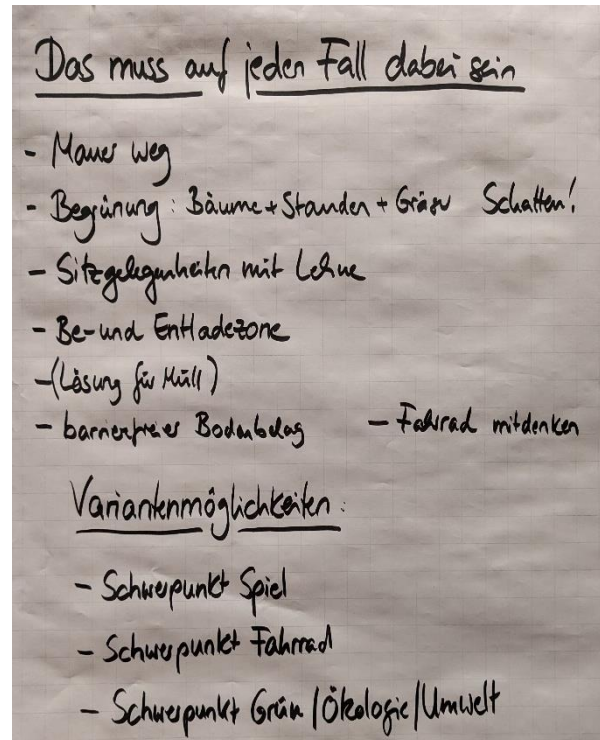 Das muss auf jeden Fall dabei sein
- Mauer weg
- Begrünung: Bäume + Stauden + Gräser Schatten!
- Sitzgelegenheiten mit Lehne
- Be- und Entladezone
- (Lösung für Müll)
- barrierefreier Bodenbelag - Fahrrad mitdenken
Variantenmöglichkeiten:
- Schwerpunkt Spiel
- Schwerpunkt Fahrrad
- Schwerpunkt Grün/Ökologie/Umwelt